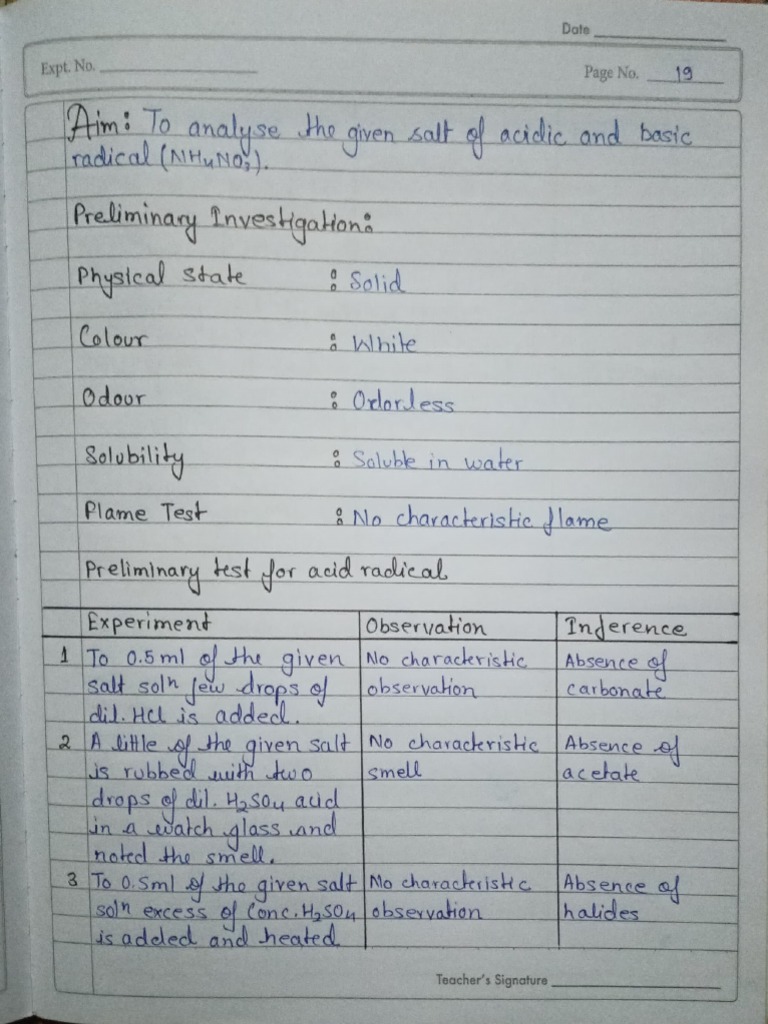 Date
Expt. No.
Page No. 19
Aim: To analyse the given salt of acidic and basic
radical (NH₄NO₃).
Preliminary Investigation:
Physical state : Solid
Colour : White
Odour : Odorless
Solubility : Soluble in water
Plame Test : No characteristic flame
Preliminary test for acid radical
Experiment Observation Inference
1 To 0.5ml of the given No characteristic Absence of
salt solⁿ few drops of observation carbonate
dil. HCl is added.
2 A little of the given salt No characteristic Absence of
is rubbed with two smell acetate
drops of dil. H₂SO₄ acid
in a watch glass and
noted the smell.
3 To 0.5ml of the given salt No characteristic Absence of
solⁿ excess of Conc. H₂SO₄ observation halides
is added and heated
Teacher's Signature